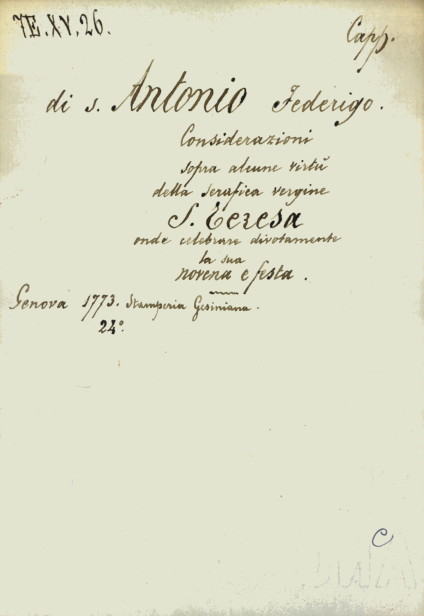 7E.XV.26.
Capp.
di s. Antonio Federigo.
Considerazioni
sopra alcune virtù
della serafica vergine
S. Teresa
onde celebrare divotamente
la sua
novena e festa.
Genova 1773. Stamperia Gesiniana.
24°.
C